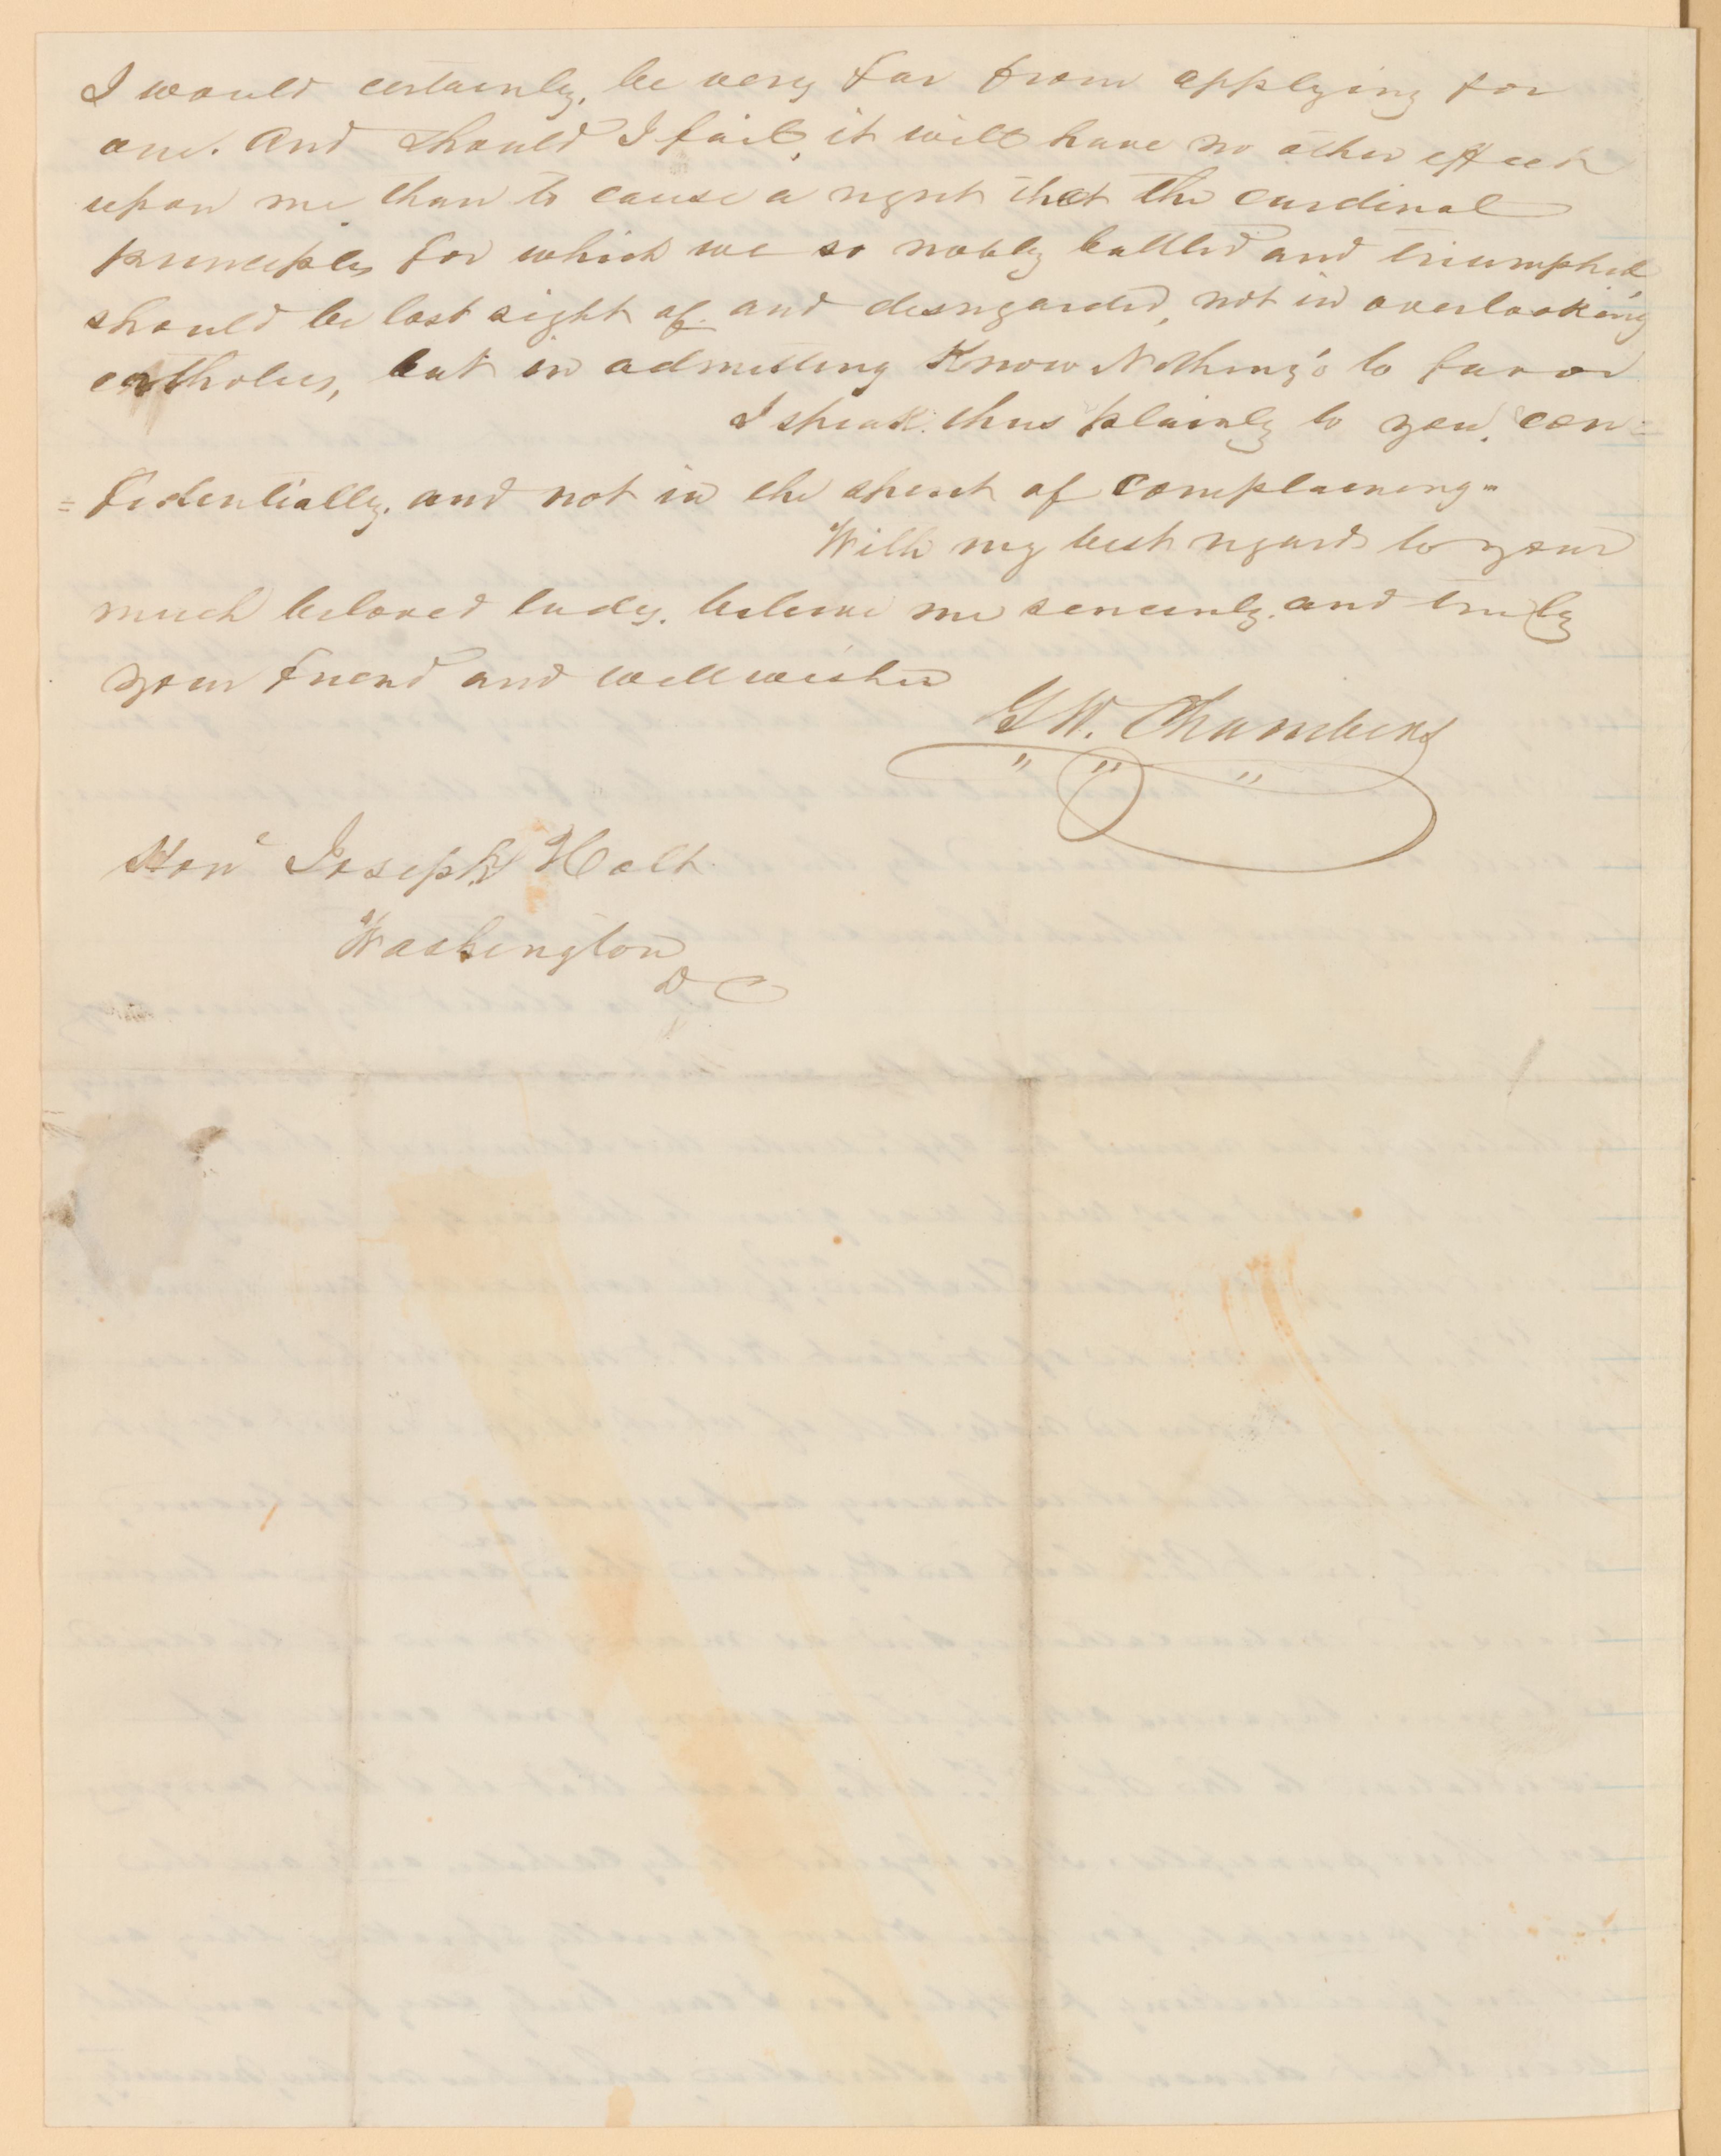 I would certainly, be very far from applying for
one. And should I fail, it will have no other effect
upon me than to cause a regret that the cardinal
principles for which we so nobly battled and triumphed,
should be lost sight of and disregarded, not in overlooking
catholics, but in admitting Know Nothing's to favor
I speak thus plainly to you, con=
=fidentially, and not in the spirit of complaining-
With my best regards to your
much beloved lady, believe me sincerely, and truly
your friend and well wisher
G W. Chambers
" " "
Hone Joseph Holt
Washington
D C